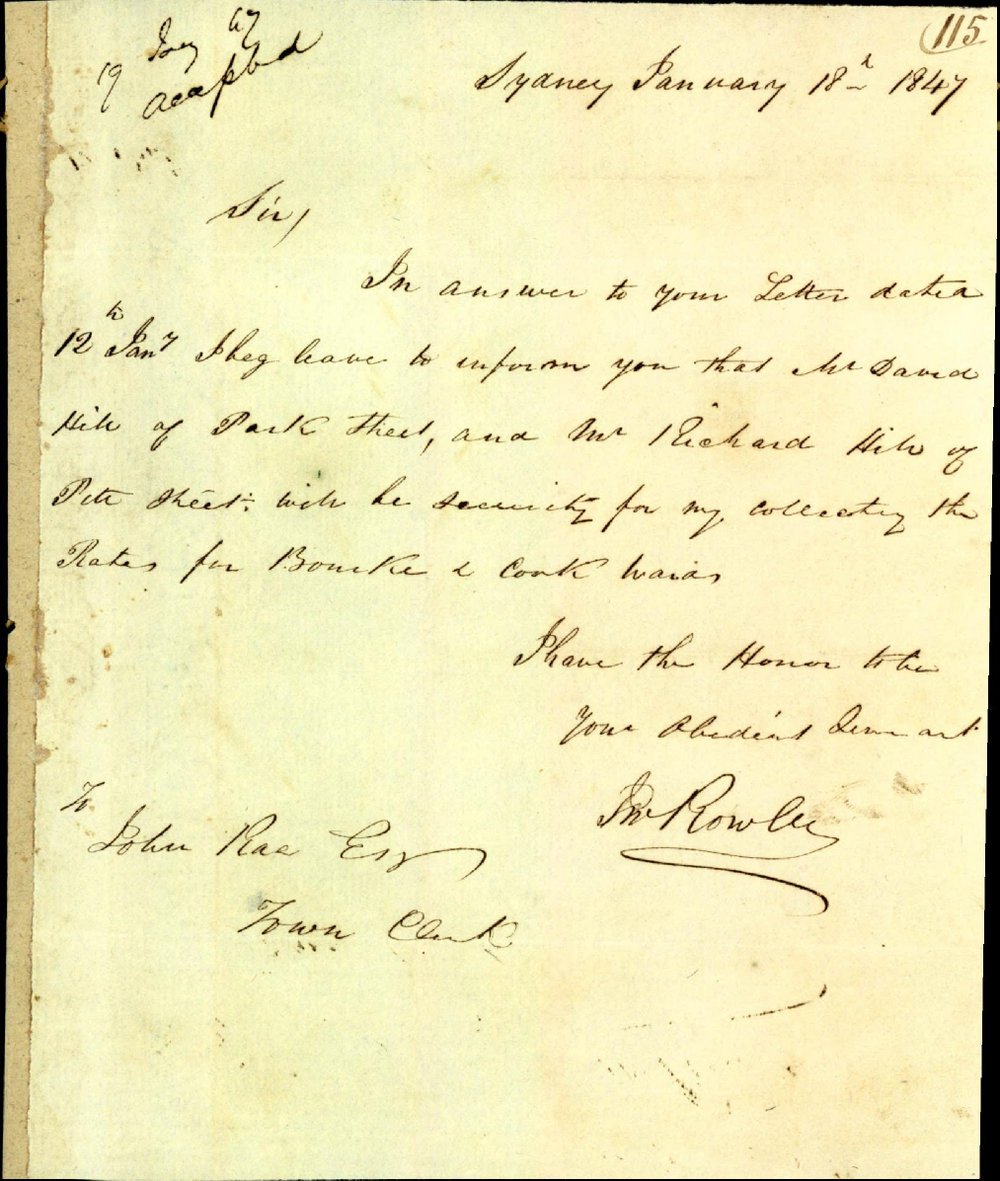 115
19 Jany 47
accepted
Sydney January 18th 1847
Sir,
In answer to your Letter dated
12th Jany I beg leave to inform you that Mr David
Hill of Park Street, and Mr Richard Hill of
Pitt Street will be security for my collecting the
Rates for Bourke & Cook Wards
I have the Honor to be
Your Obedient Servant
Jno Rowley
To
John Rae Esqr
Town Clerk